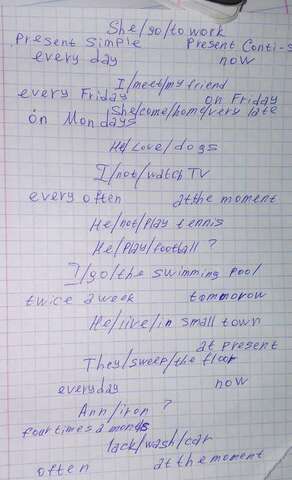 She/go/to work
Present Simple Present Conti-s
every day now
I/meet/my friend
every Friday on Friday
She/come/home/very late
on Mondays
He/Love/dogs
I/not/watch TV
every often at the moment
He/not/play tennis
He/play/football?
I/go/the swimming pool
twice a week tommorow
He/live/in small town
at present
They/sweep/the floor
everyday now
Ann/iron?
four times a month
Jack/wash/car
often at the moment